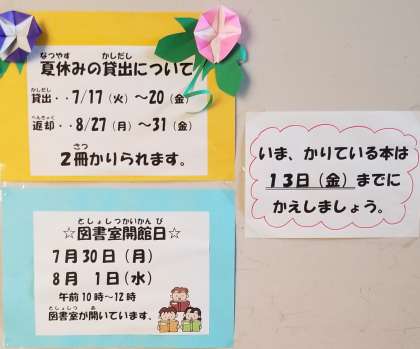 なつやす　かしだし
夏休みの貸出について
かしだし
貸出・・7/17（火）～20（金）
へんきゃく
返却・・8/27（月）～31（金）
さつ
2冊かりられます。
いま、かりている本は
13日（金）までに
かえしましょう。
としょしつかいかんび
☆図書室開館日☆
7月30日（月）
8月　1日（水）
午前10時～12時
としょしつ　あ
図書室が開いています。